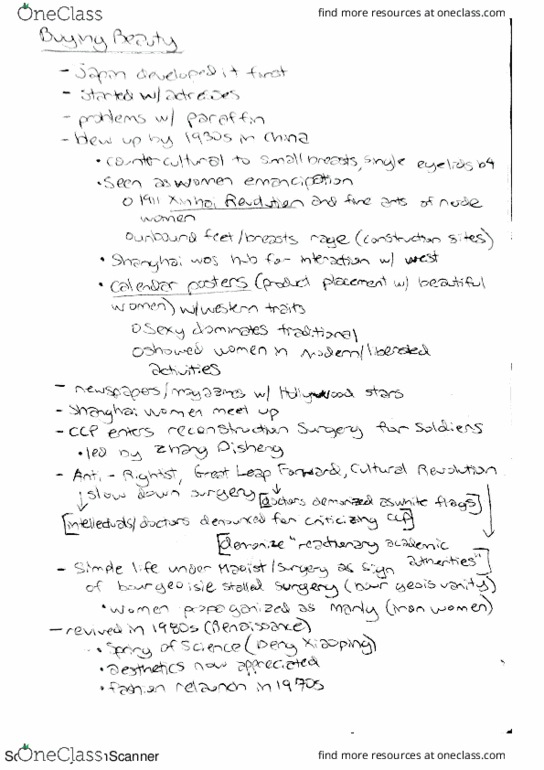 OneClass
find more resources at oneclass.com
Buying Beauty
- Japan developed it first
- started w/ actresses
- problems w/ paraffin
- blew up by 1930s in China
• countercultural to small breasts, single eyelids b4
• Seen as women emancipation
o 1911 Xinhai Revolution and fine arts of nude
women
o unbound feet/breasts rage (construction sites)
• Shanghai was hub for interaction w/ west
• calendar posters (product placement w/ beautiful
women) w/ western traits
o Sexy dominates traditional
o showed women in modern/liberated
activities
- newspapers/magazines w/ Hollywood stars
- Shanghai women meet up
- CCP enters reconstruction surgery for Soldiers
• led by Zhang Disheng
- Anti-Rightist, Great Leap Forward, Cultural Revolution
↓ slow down surgery [doctors demonized as white flags]
[intellectuals/doctors denounced for criticizing CCP]
[demonize "reactionary academic
authorities"]
- Simple life under Maoist/surgery as sign
of bourgeoisie stalled surgery (bourgeois vanity)
• women propoganized as manly (Iron women)
- revived in 1980s (Renaissance)
• Spring of Science (Deng Xiaoping)
• aesthetics now appreciated
• fashion relaunch in 1970s
OneClass
Scanner
find more resources at oneclass.com